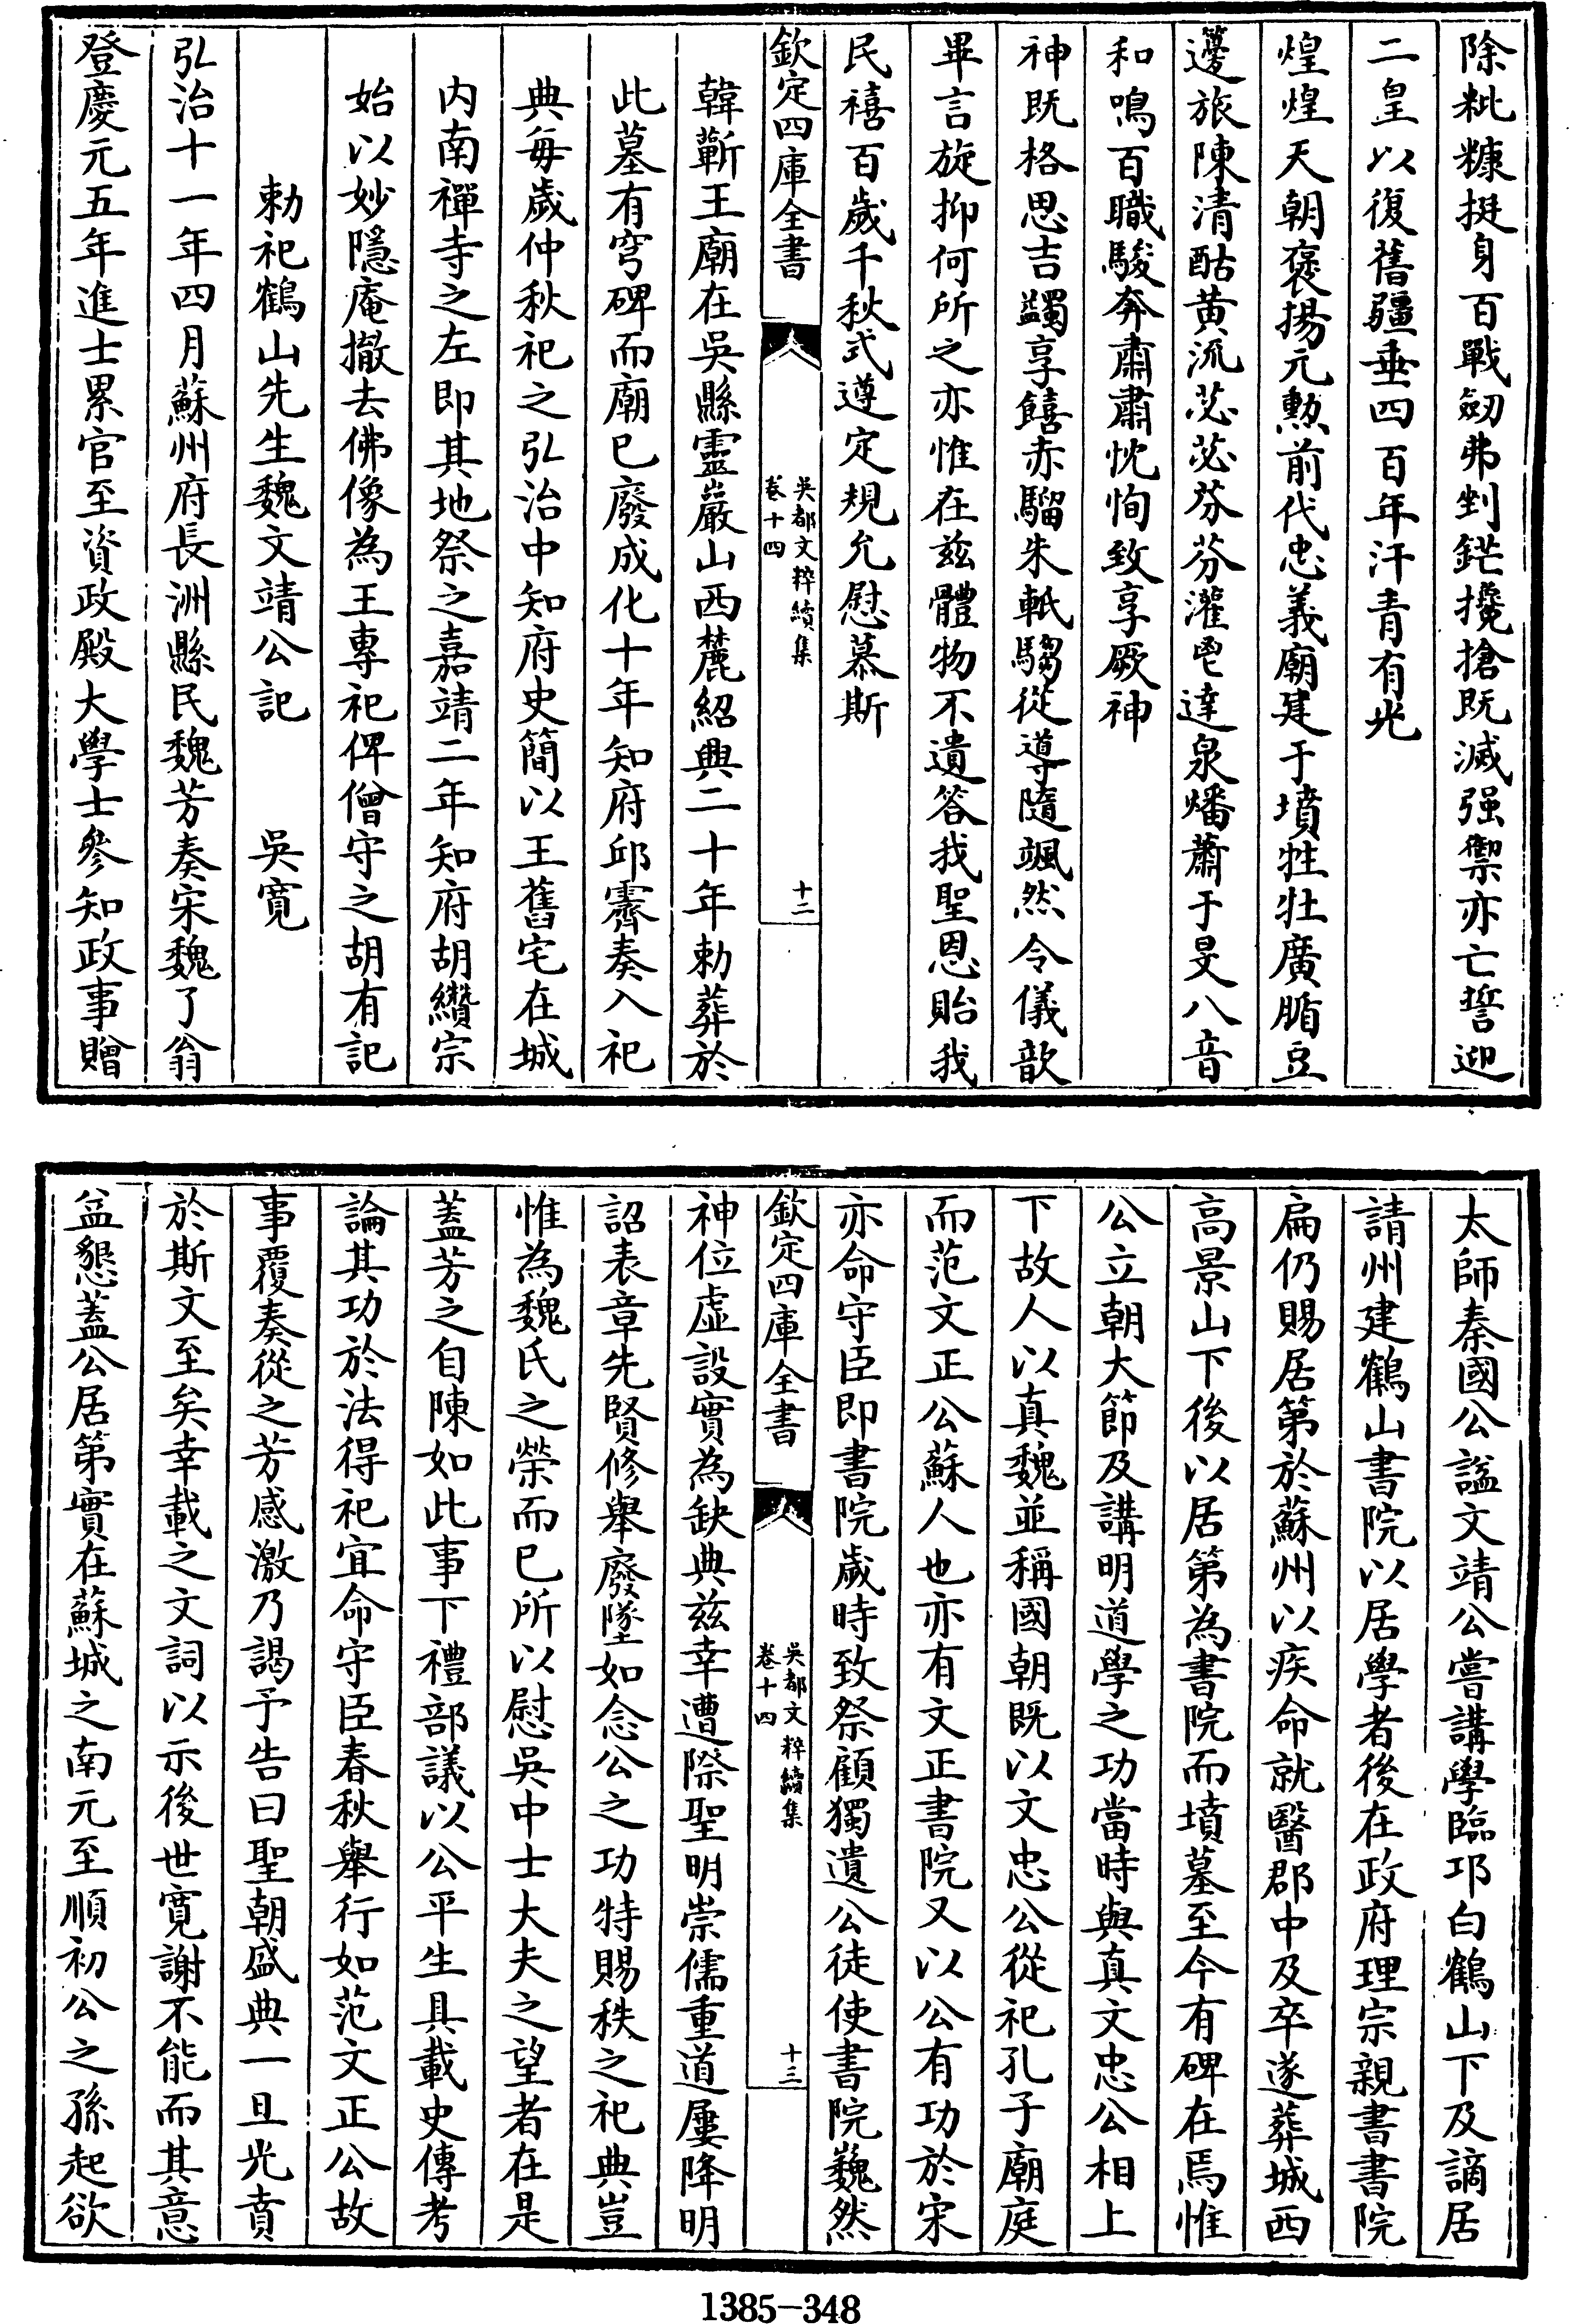 除粃糠挺身百戰劒弗剉鋩攙搶既滅强禦亦亡誓迎
二皇以復舊疆垂四百年汗青有光
煌煌天朝褒揚元勲前代忠義廟建于墳牲牡廣腯豆
籩旅陳清酤黄流苾苾芬芬灌鬯達泉燔蕭于旻八音
和鳴百職駿奔肅肅忱恂致享厥神
神既格思吉蠲享饎赤騮朱軝騶從導隨颯然令儀歆
畢言旋抑何所之亦惟在兹體物不遺答我聖恩貽我
民禧百歲千秋式遵定規允慰慕斯
欽定四庫全書
吳都文粹續集
卷十四
十二
韓蘄王廟在吳縣靈巖山西麓紹興二十年勅葬於
此墓有穹碑而廟已廢成化十年知府邱霽奏入祀
典每歲仲秋祀之弘治中知府史簡以王舊宅在城
内南禪寺之左即其地祭之嘉靖二年知府胡纘宗
始以妙隱庵撤去佛像為王專祀俾僧守之胡有記
勅祀鶴山先生魏文靖公記 吳寛
弘治十一年四月蘇州府長洲縣民魏芳奏宋魏了翁
登慶元五年進士累官至資政殿大學士參知政事贈
太師秦國公諡文靖公嘗講學臨邛白鶴山下及謫居
請州建鶴山書院以居學者後在政府理宗親書書院
扁仍賜居第於蘇州以疾命就醫郡中及卒遂葬城西
高景山下後以居第為書院而墳墓至今有碑在焉惟
公立朝大節及講明道學之功當時與真文忠公相上
下故人以真魏並稱國朝既以文忠公從祀孔子廟庭
而范文正公蘇人也亦有文正書院又以公有功於宋
亦命守臣即書院歲時致祭顧獨遺公徒使書院巍然
欽定四庫全書
吳都文粹續集
卷十四
十三
神位虚設實為缺典兹幸遭際聖明崇儒重道屢降明
詔表章先賢修舉廢墜如念公之功特賜秩之祀典豈
惟為魏氏之榮而已所以慰吳中士大夫之望者在是
蓋芳之自陳如此事下禮部議以公平生具載史傳考
論其功於法得祀宜命守臣春秋舉行如范文正公故
事覆奏從之芳感激乃謁予告曰聖朝盛典一旦光賁
於斯文至矣幸載之文詞以示後世寛謝不能而其意
益懇蓋公居第實在蘇城之南元至順初公之孫起欲
1385-348